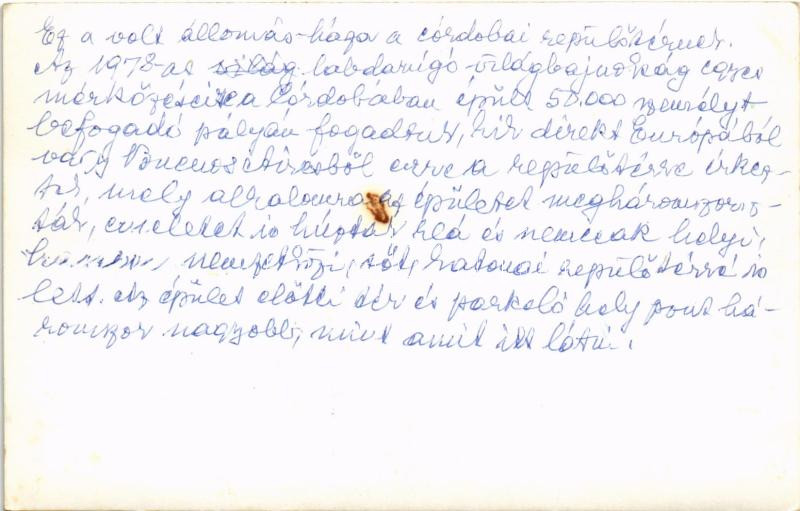 Ez a volt állomás-háza a córdobai repülőtérnek.
Az 1978-as világ labdarúgó-világbajnokság egyes
mérkőzéseit a Córdobában épült 50.000 személyt
befogadó pályán fogadták, kik direkt Európából
vagy Buenos Airesből erre a repülőtérre érkez-
tek, mely alkalomra az épületet megháromszoroz-
ták, emeletet is húztak reá és nemcsak helyi,
nemzetközi, sőt, katonai repülőtérré is
lett. Az épület előtti tér és parkoló hely pont há-
romszor nagyobb, mint amit itt látni.